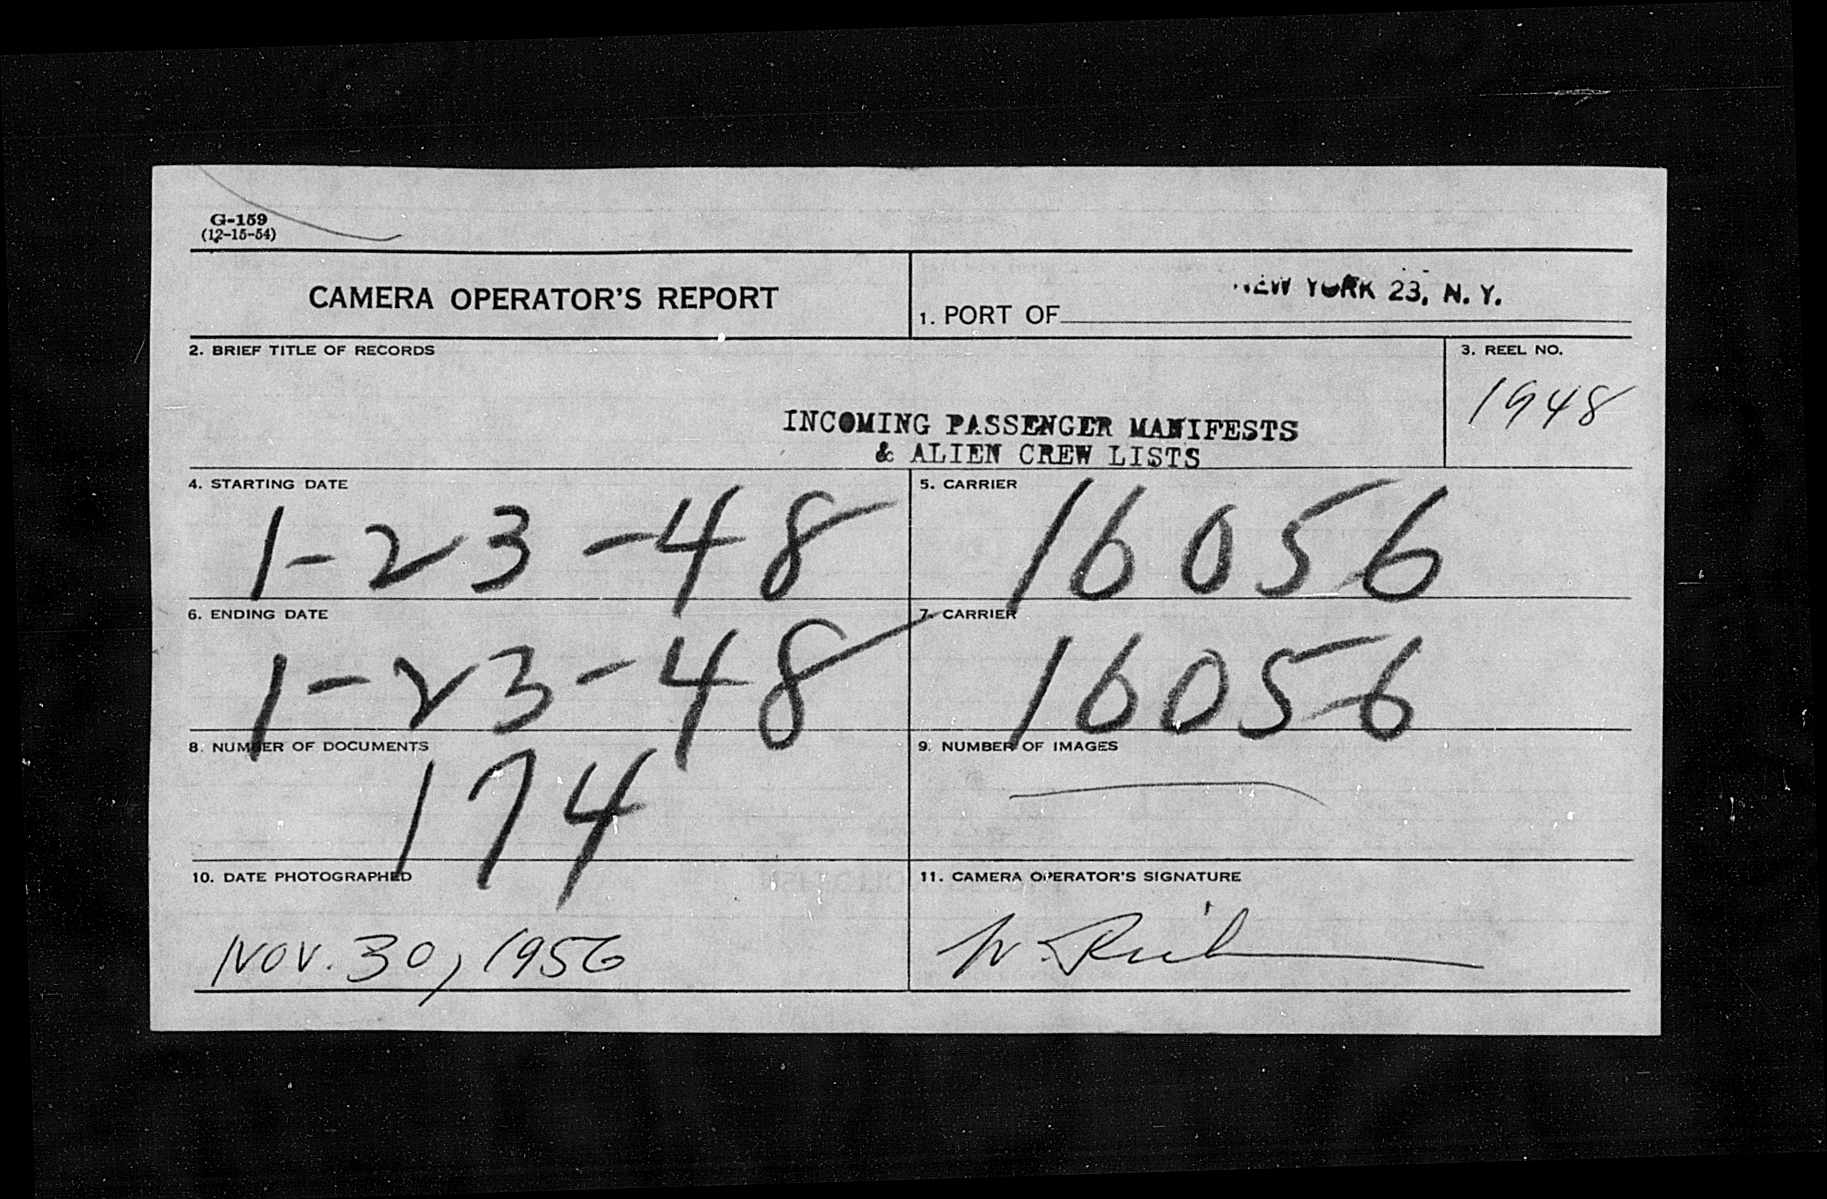 G-159
(12-15-54)
CAMERA OPERATOR'S REPORT
1. PORT OF NEW YORK 23, N. Y.
2. BRIEF TITLE OF RECORDS
INCOMING PASSENGER MANIFESTS
& ALIEN CREW LISTS
3. REEL NO.
1948
4. STARTING DATE
1-23-48
5. CARRIER
16056
6. ENDING DATE
1-23-48
7. CARRIER
16056
8. NUMBER OF DOCUMENTS
174
9. NUMBER OF IMAGES
10. DATE PHOTOGRAPHED
NOV. 30, 1956
11. CAMERA OPERATOR'S SIGNATURE